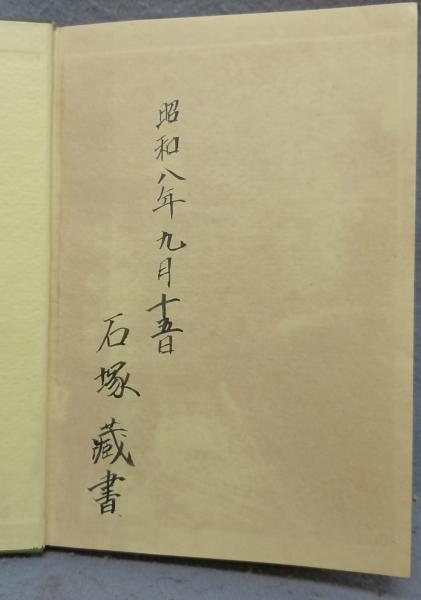 昭和八年九月十五日
石塚藏書